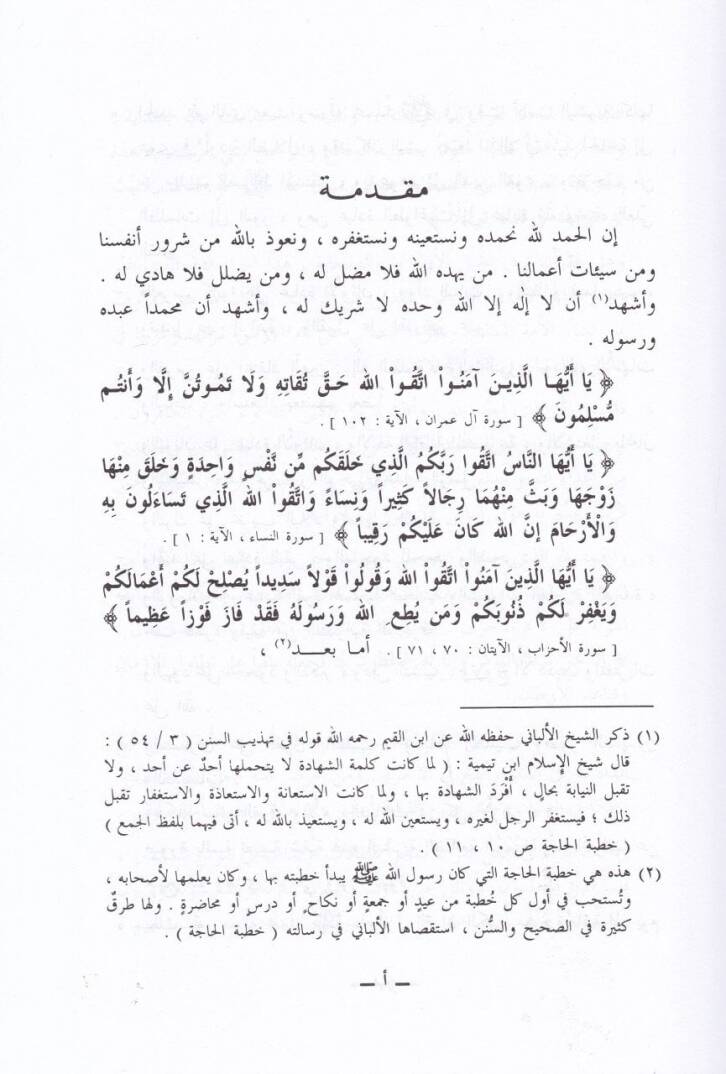 مقدمة
إن الحمد لله نحمده ونستعينه ونستغفره ، ونعوذ بالله من شرور أنفسنا
ومن سيئات أعمالنا . من يهده الله فلا مضل له ، ومن يضلل فلا هادي له .
وأشهد(١) أن لا إله إلا الله وحده لا شريك له ، وأشهد أن محمداً عبده
ورسوله .
﴿ يَا أَيُّهَا الَّذِينَ آمَنُوا اتَّقُوا الله حَقَّ تُقَاتِهِ وَلَا تَمُوتُنَّ إِلَّا وَأَنتُم
مُّسْلِمُونَ ﴾ [ سورة آل عمران ، الآية : ١٠٢ ] .
﴿ يَا أَيُّهَا النَّاسُ اتَّقُوا رَبَّكُمُ الَّذِي خَلَقَكُم مِّن نَّفْسٍ وَاحِدَةٍ وَخَلَقَ مِنْهَا
زَوْجَهَا وَبَثَّ مِنْهُمَا رِجَالاً كَثِيراً وَنِسَاءً وَاتَّقُوا الله الَّذِي تَسَاءَلُونَ بِهِ
وَالْأَرْحَامَ إِنَّ الله كَانَ عَلَيْكُمْ رَقِيباً ﴾ [ سورة النساء ، الآية : ١ ] .
﴿ يَا أَيُّهَا الَّذِينَ آمَنُوا اتَّقُوا الله وَقُولُوا قَوْلاً سَدِيداً يُصْلِحْ لَكُمْ أَعْمَالَكُمْ
وَيَغْفِرْ لَكُمْ ذُنُوبَكُمْ وَمَن يُطِعِ الله وَرَسُولَهُ فَقَدْ فَازَ فَوْزاً عَظِيماً ﴾
[ سورة الأحزاب ، الآيتان : ٧٠ ، ٧١ ] . أما بعـد(٢) ،
(١) ذكر الشيخ الألباني حفظه الله عن ابن القيم رحمه الله قوله في تهذيب السنن ( ٣ / ٥٤ ) :
قال شيخ الإسلام ابن تيمية : ( لما كانت كلمة الشهادة لا يتحملها أحدٌ عن أحد ، ولا
تقبل النيابة بحال ، أُفْرِدَ الشهادة بها ، ولما كانت الاستعانة والاستعاذة والاستغفار تقبل
ذلك ؛ فيستغفر الرجل لغيره ، ويستعين الله له ، ويستعيذ بالله له ، أتى فيهما بلفظ الجمع )
( خطبة الحاجة ص ١٠ ، ١١ ) .
(٢) هذه هي خطبة الحاجة التي كان رسول الله ﷺ يبدأ خطبته بها ، وكان يعلمها لأصحابه ،
وتُستحب في أول كل خُطبة من عيدٍ أو جمعةٍ أو نكاحٍ أو درسٍ أو محاضرةٍ . ولها طرقٌ
كثيرة في الصحيح والسُّنن ، استقصاها الألباني في رسالته ( خطبة الحاجة ) .
ـ أ ـ